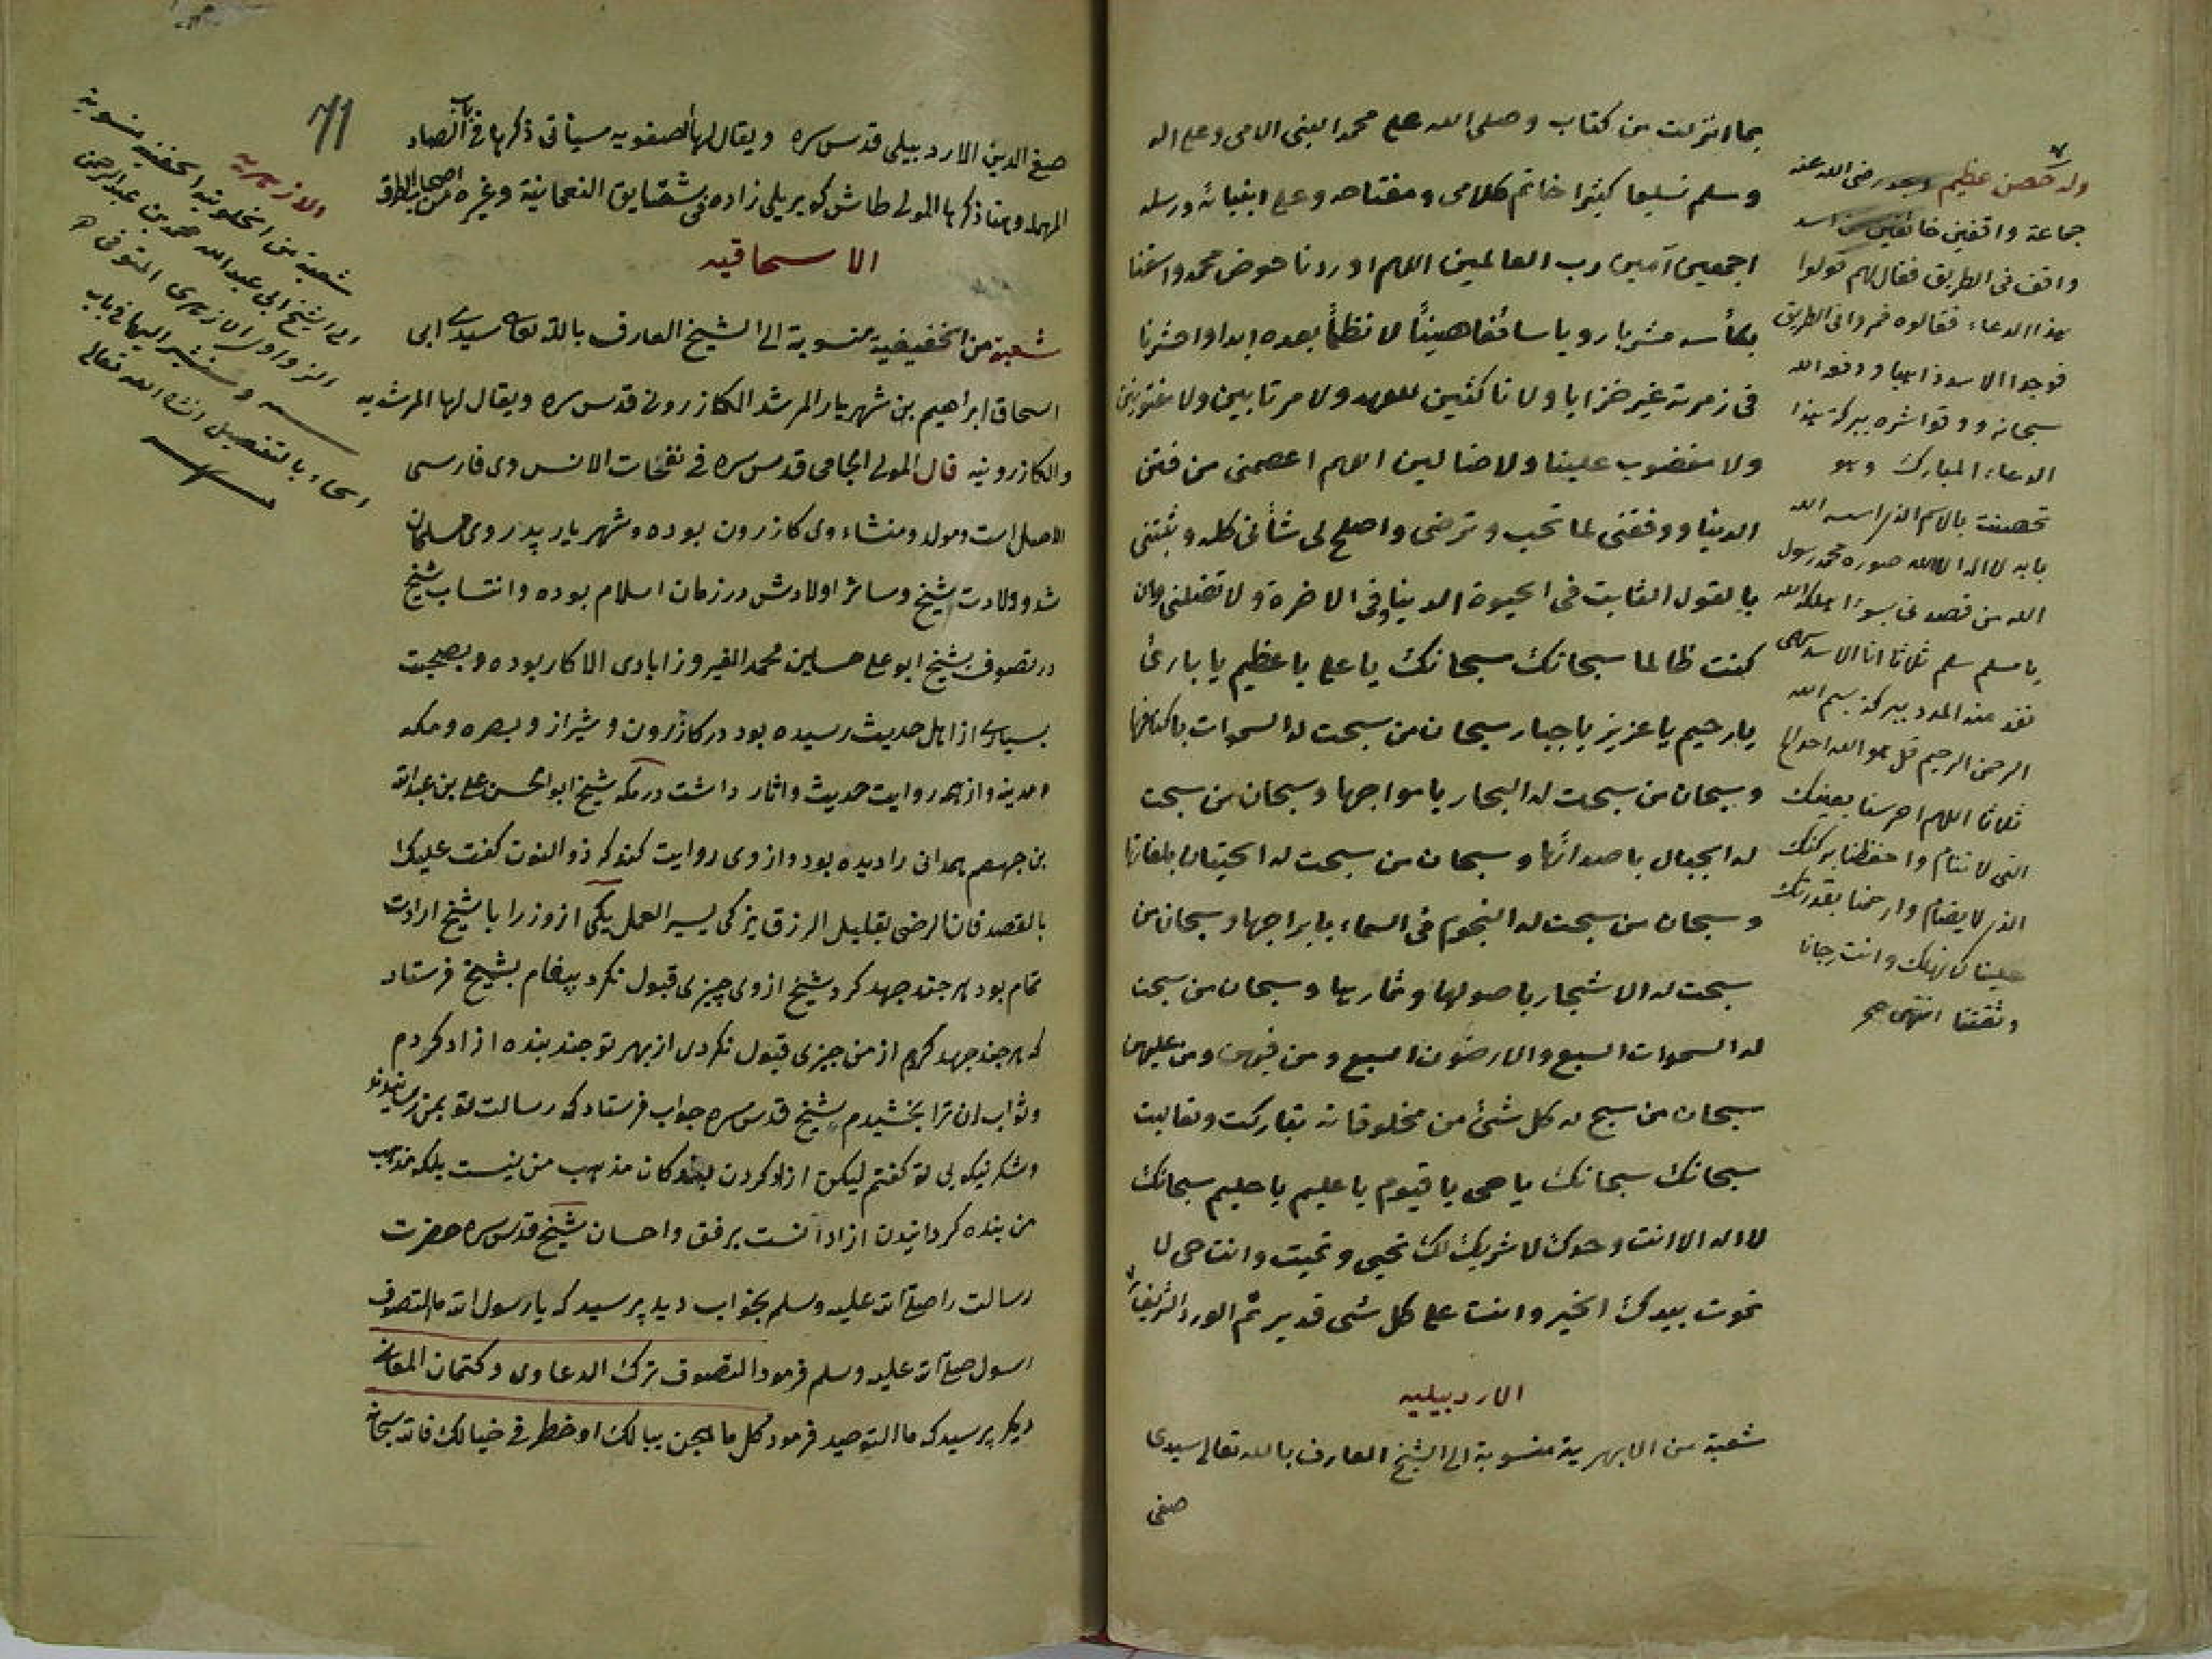 بما انزلت من كتاب وصلى الله على محمد النبى الامى وعلى اله
وسلم تسليما كثيرا خاتم كلامى ومفتاحه وعلى انبيائه ورسله
اجمعين آمين رب العالمين اللهم اوردنا حوض محمد واسقنا
بكأسه مشربا رويا سائغا هنيئاً لا نظمأ بعده ابدا واحشرنا
فى زمرته غير خزايا ولا ناكثين للعهد ولا مرتابين ولا مفتونين
ولا مغضوب علينا ولا ضالين اللهم اعصمنى من فتن
الدنيا ووفقنى لما تحب وترضى واصلح لى شأنى كله وثبتنى
بالقول الثابت فى الحيوة الدنيا وفى الاخرة ولا تضلنى وان
كنت ظالما سبحانك سبحانك يا على يا عظيم يا بارئ
يا رحيم يا عزيز يا جبار سبحان من سبحت له السموات باكنافها
وسبحان من سبحت له البحار بامواجها وسبحان من سبحت
له الجبال باصدائها وسبحان من سبحت له الحيتان بلغاتها
وسبحان من سبحت له النجوم فى السماء بابراجها وسبحان من
سبحت له الاشجار باصولها وثمارها وسبحان من سبحت
له السموات السبع والارضون السبع ومن فيهن ومن عليهن
سبحان من سبح له كل شئ من مخلوقاته تباركت وتعاليت
سبحانك سبحانك يا حى يا قيوم يا عليم يا حليم سبحانك
لا اله الا انت وحدك لا شريك لك تحيى وتميت وانت حى لا
تموت بيدك الخير وانت على كل شئ قدير تم الورد الشريف
الاردبيليه
شعبة من الابهرية منسوبة الى الشيخ العارف بالله تعالى سيدى
صفى
وله حصن عظيم رضى الله عنه
جماعة واقفين خائفين من اسد
واقف فى الطريق فقال لهم قولوا
هذا الدعاء فقالوه فمروا فى الطريق
فوجدوا الاسد ذاهبا ودفع الله
سبحانه ووقوا شره ببركة هذا
الدعاء المبارك وهو
تحصنت بالاسم الذى اسمه الله
بابه لا اله الا الله سوره محمد رسول
الله من قصدنى بسوء اهلكه الله
يا مسلم سلم ثلاثا انا الاسد سهمى
نفذ منه المدد ببركة بسم الله
الرحمن الرحيم قل هو الله احد الخ
ثلاثا اللهم احرسنا بعينك
التى لا تنام واحفظنا بركنك
الذى لا يضام وارحمنا بقدرتك
علينا لا نهلك وانت رجانا
وثقتنا انتهى
٧١
صفى الدين الاردبيلى قدس سره ويقال لها الصفويه سياتى ذكرها فى باب الصاد
المهملة وهنا ذكرها المولى طاش كوبريلى زاده فى شقايق النعمانية وغيره من اصحاب الطرق
الاسحاقيه
شعبة من الخفيفية منسوبة الى الشيخ العارف بالله تعالى سيدى ابى
اسحاق ابراهيم بن شهريار المرشد الكازرونى قدس سره ويقال لها المرشديه
والكازرونيه قال المولى الجامى قدس سره فى نفحات الانس وى فارسى
الاصل است ومولد ومنشاء وى كازرون بوده وشهريار پدر وى مسلمان
شد وولادت شيخ وسائر اولادش در زمان اسلام بوده وانتساب شيخ
در تصوف بشيخ ابو على حسين محمد الفيروزابادى الاكار بوده وبصحبت
بسيارى از اهل حديث رسيده بود در كازرون وشيراز وبصره ومكه
المدينه واز همه روايت حديث واثار داشت در مكه شيخ ابو الحسن على بن عبد الله
بن جهضم همدانى را ديده بود واز وى روايت كند كه ذو النون گفت عليك
بالقصد فان الرضى بقليل الرزق يزكى يسير العمل يكى از وزرا با شيخ ارادت
تمام بود هر چند جهد كرد شيخ از وى چيزى قبول نكرد پيغام بشيخ فرستاد
كه هر چند جهد كردم از من چيزى قبول نكردى از بهر تو چند بنده ازاد كردم
وثواب ان ترا بخشيدم شيخ قدس سره جواب فرستاد كه رسالت تو بمن رسانيدند
وشكر نيكويى تو گفتم ليكن ازاد كردن بندگان مذهب من نيست بلكه مذهب
من بنده گردانيدن ازاد انست برفق واحسان شيخ قدس سره حضرت
رسالت را صلى الله عليه وسلم بخواب ديد پرسيد كه يا رسول الله ما التصوف
رسول صلى الله عليه وسلم فرمود التصوف ترك الدعاوى وكتمان المعانى
ديگر پرسيد كه ما التوحيد فرمود كل ما هجس ببالك او خطر فى خيالك فالله سبحانه
الازهريه
شعبة من الخلوتيه الحفنيه منسوبة
الى الشيخ ابى عبد الله محمد بن عبد الرحمن
الزواوى الازهرى المتوفى
سنه وسنشير اليها فى باب
الحاء بالتفصيل انشاء الله تعالى